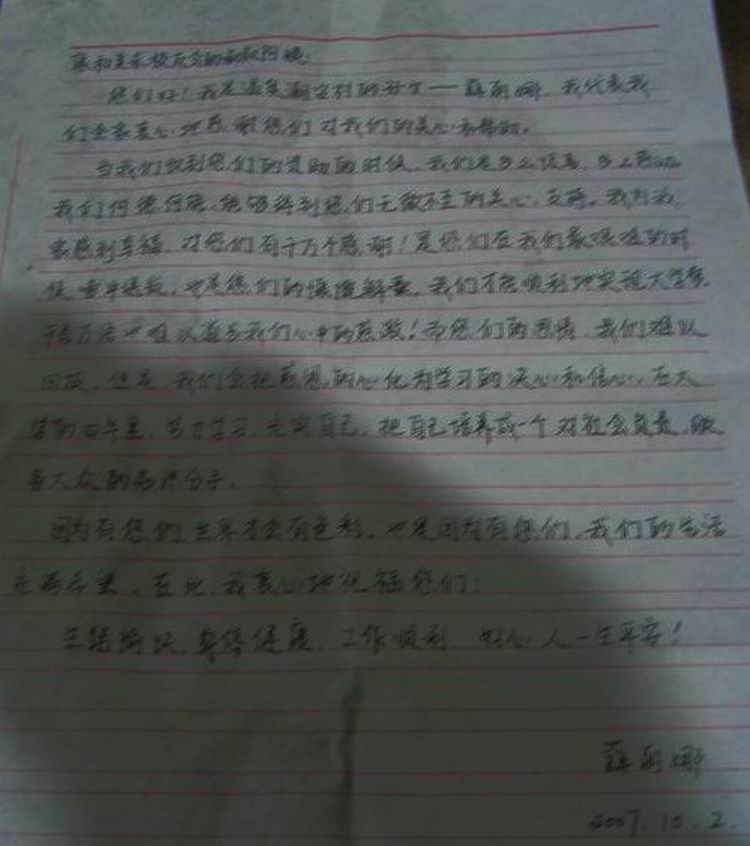 您们好！我是温 的 — 丽娜，我代表我
们全家衷心地感谢您们对我们的关心和帮助。
当我们收到您们的资助的时候，我们是多么惊喜，多么
我们何德何能，能够得到您们无微不至的关心、支持。我为我
家感到幸福，对您们有千万个感谢！是您们在我们最艰难的时
候雪中送炭，也是您们的慷慨解囊，我们才能顺利地实现大学梦。
千言万语也难以道出我们心中的感激！而您们的恩情，我们难以
回报，但是，我们会把感恩的心化为学习的决心和信心，在大
学的四年里，努力学习，充实自己，把自己培养成一个对社会负责，服
务大众的高 分子。
因为有您们，世界才会有色彩，也是因为有您们，我们的生活
充满希望，在此，我衷心地祝福您们：
生活愉快，身体健康，工作顺利，好心人一生平安！
丽娜
2007.10.2.